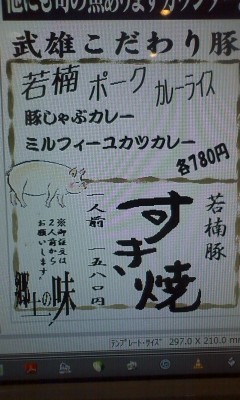 他にも旬の魚あります
武雄こだわり豚
若楠 ポーク カレーライス
豚しゃぶカレー
ミルフィーユカツカレー
各780円
若楠豚
すき焼
一人前 一五八〇円
※御注文は
2人前から
お願いします。
郷土の味
テンプレート・サイズ 297.0 X 210.0 m